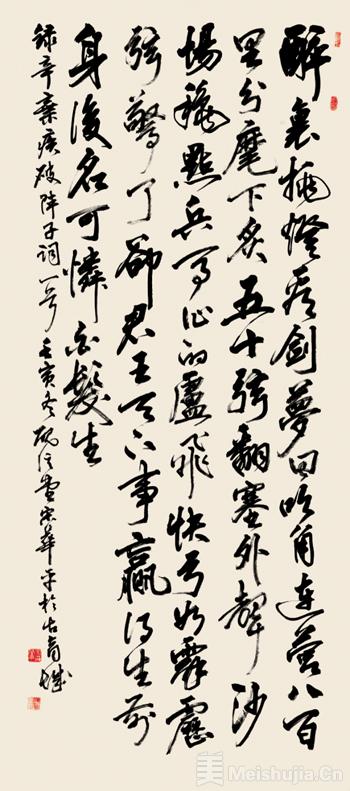 醉裏挑燈看劍夢回吹角連營八百
里分麾下炙五十弦翻塞外聲沙
場穐點兵馬作的盧飛快弓如霹靂
弦驚了卻君王天下事贏得生前
身後名可憐白髮生
錄辛棄疾破阵子词一首壬寅冬華平於古
美 Meishujia.Cn